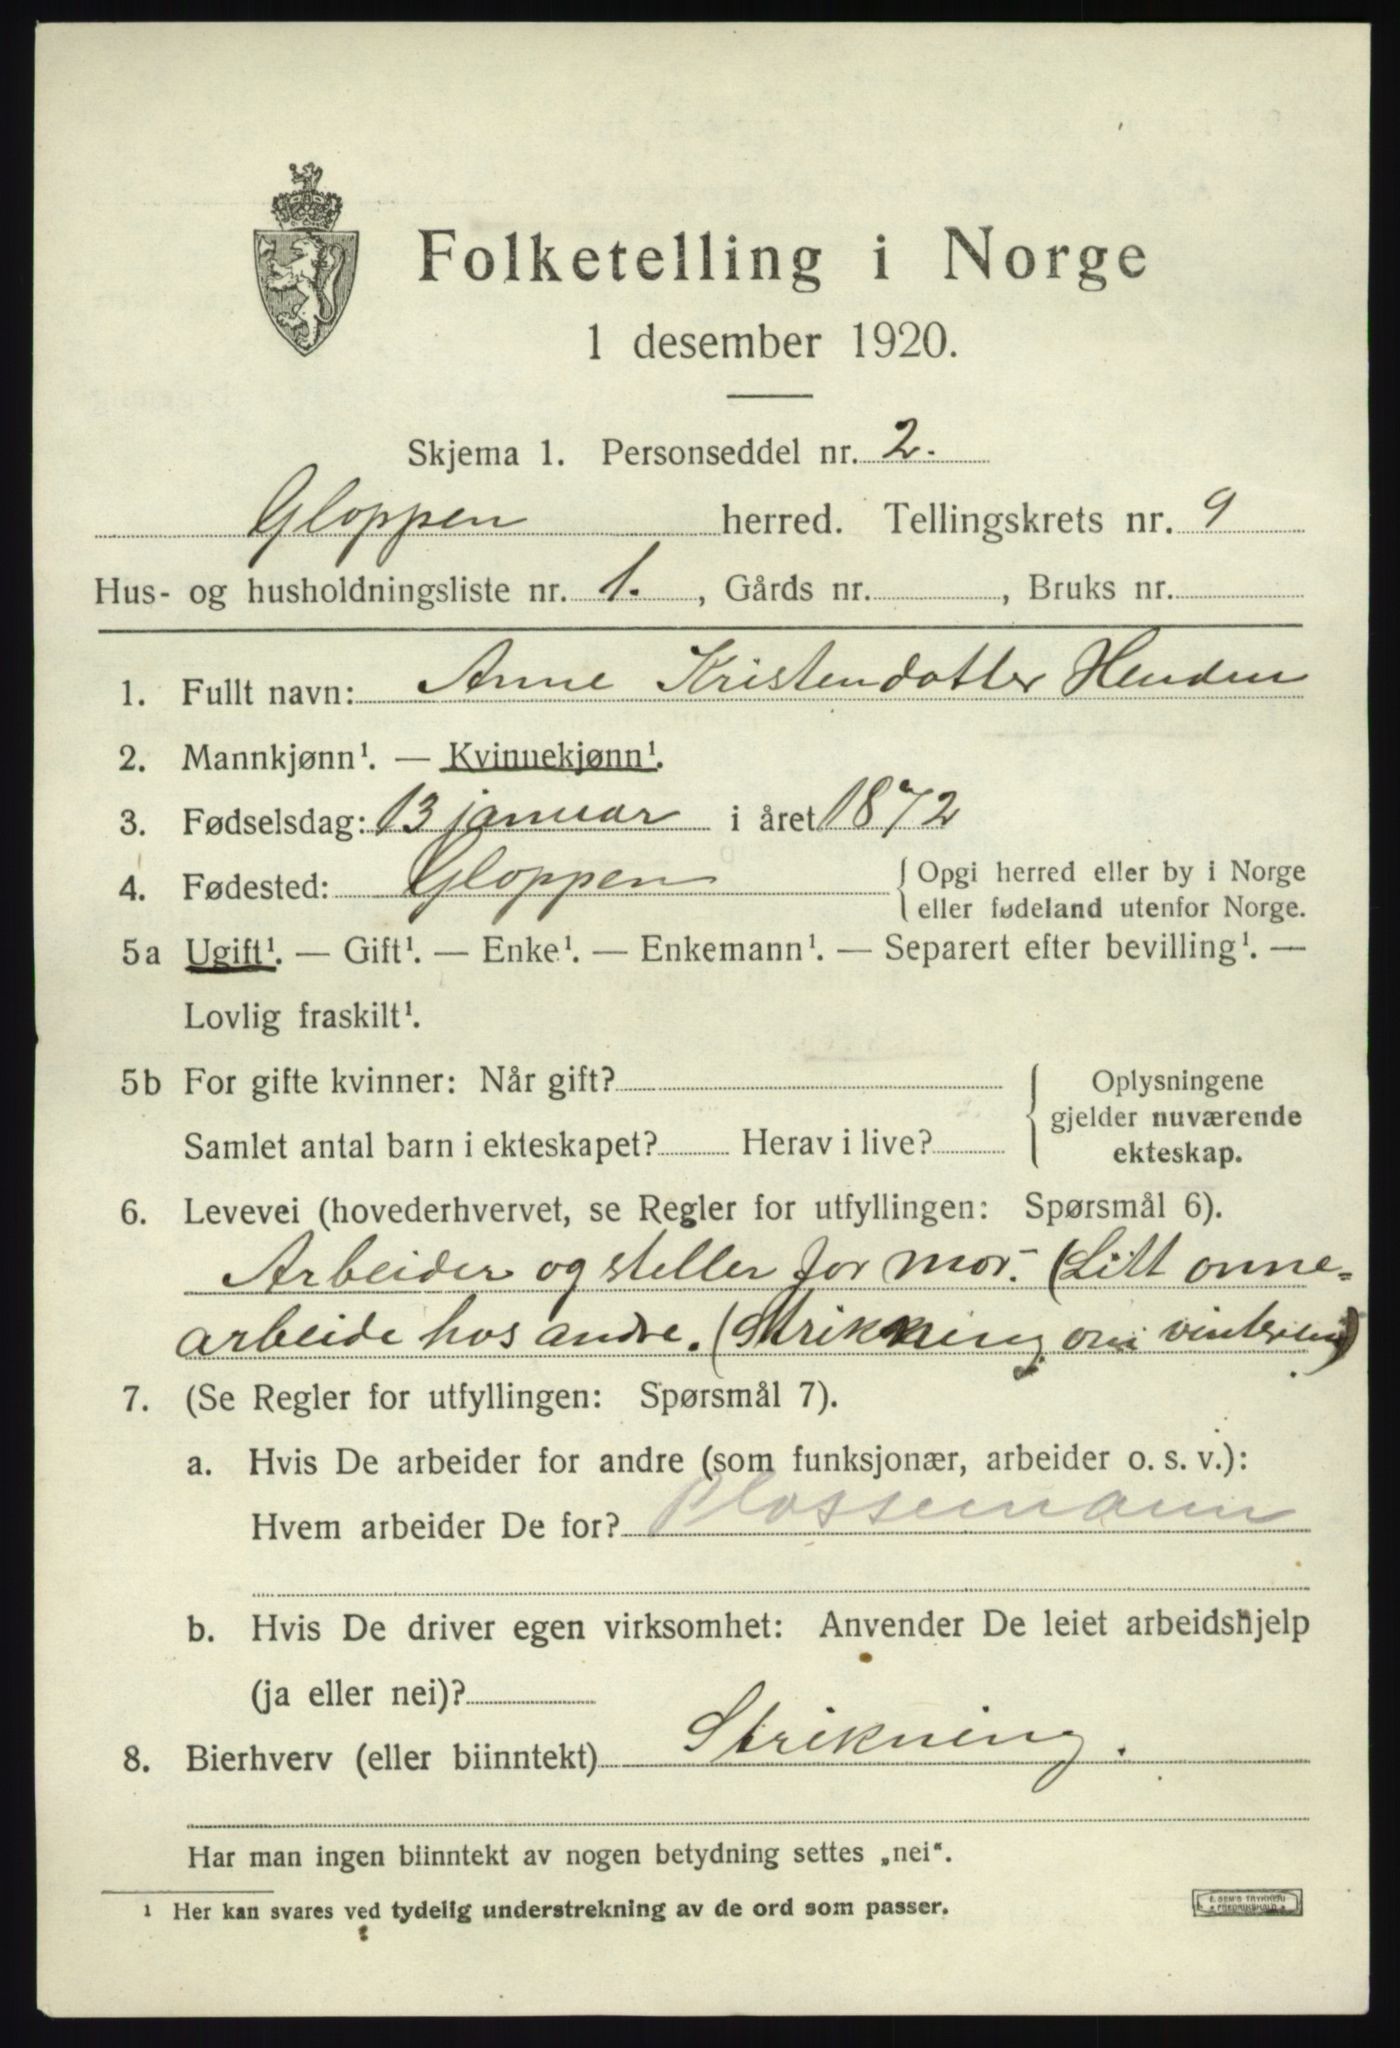 Folketelling i Norge
1 desember 1920.
Skjema 1. Personseddel nr. 2.
Gloppen herred. Tellingskrets nr. 9
Hus- og husholdningsliste nr. 1. , Gårds nr. , Bruks nr.
1. Fullt navn: Anne Kristendotter Henden
2. Mannkjønn¹. — Kvinnekjønn¹.
3. Fødselsdag: 13 januar i året 1872
4. Fødested: Gloppen { Opgi herred eller by i Norge
eller fødeland utenfor Norge.
5a Ugift¹. — Gift¹. — Enke¹. — Enkemann¹. — Separert efter bevilling¹. —
Lovlig fraskilt¹.
5b For gifte kvinner: Når gift? { Oplysningene
gjelder nuværende
Samlet antal barn i ekteskapet? Herav i live?
ekteskap.
6. Levevei (hovederhvervet, se Regler for utfyllingen: Spørsmål 6).
Arbeider og steller for mor. (Litt onne=
arbeide hos andre. (Strikkning om vinteren)
7. (Se Regler for utfyllingen: Spørsmål 7).
a. Hvis De arbeider for andre (som funksjonær, arbeider o. s. v.):
Hvem arbeider De for? Plassemann
b. Hvis De driver egen virksomhet: Anvender De leiet arbeidshjelp
(ja eller nei)?
8. Bierhverv (eller biinntekt) Strikning.
Har man ingen biinntekt av nogen betydning settes „nei“.
¹ Her kan svares ved tydelig understrekning av de ord som passer.
E. SEM'S TRYKKERI
FREDRIKSHALD